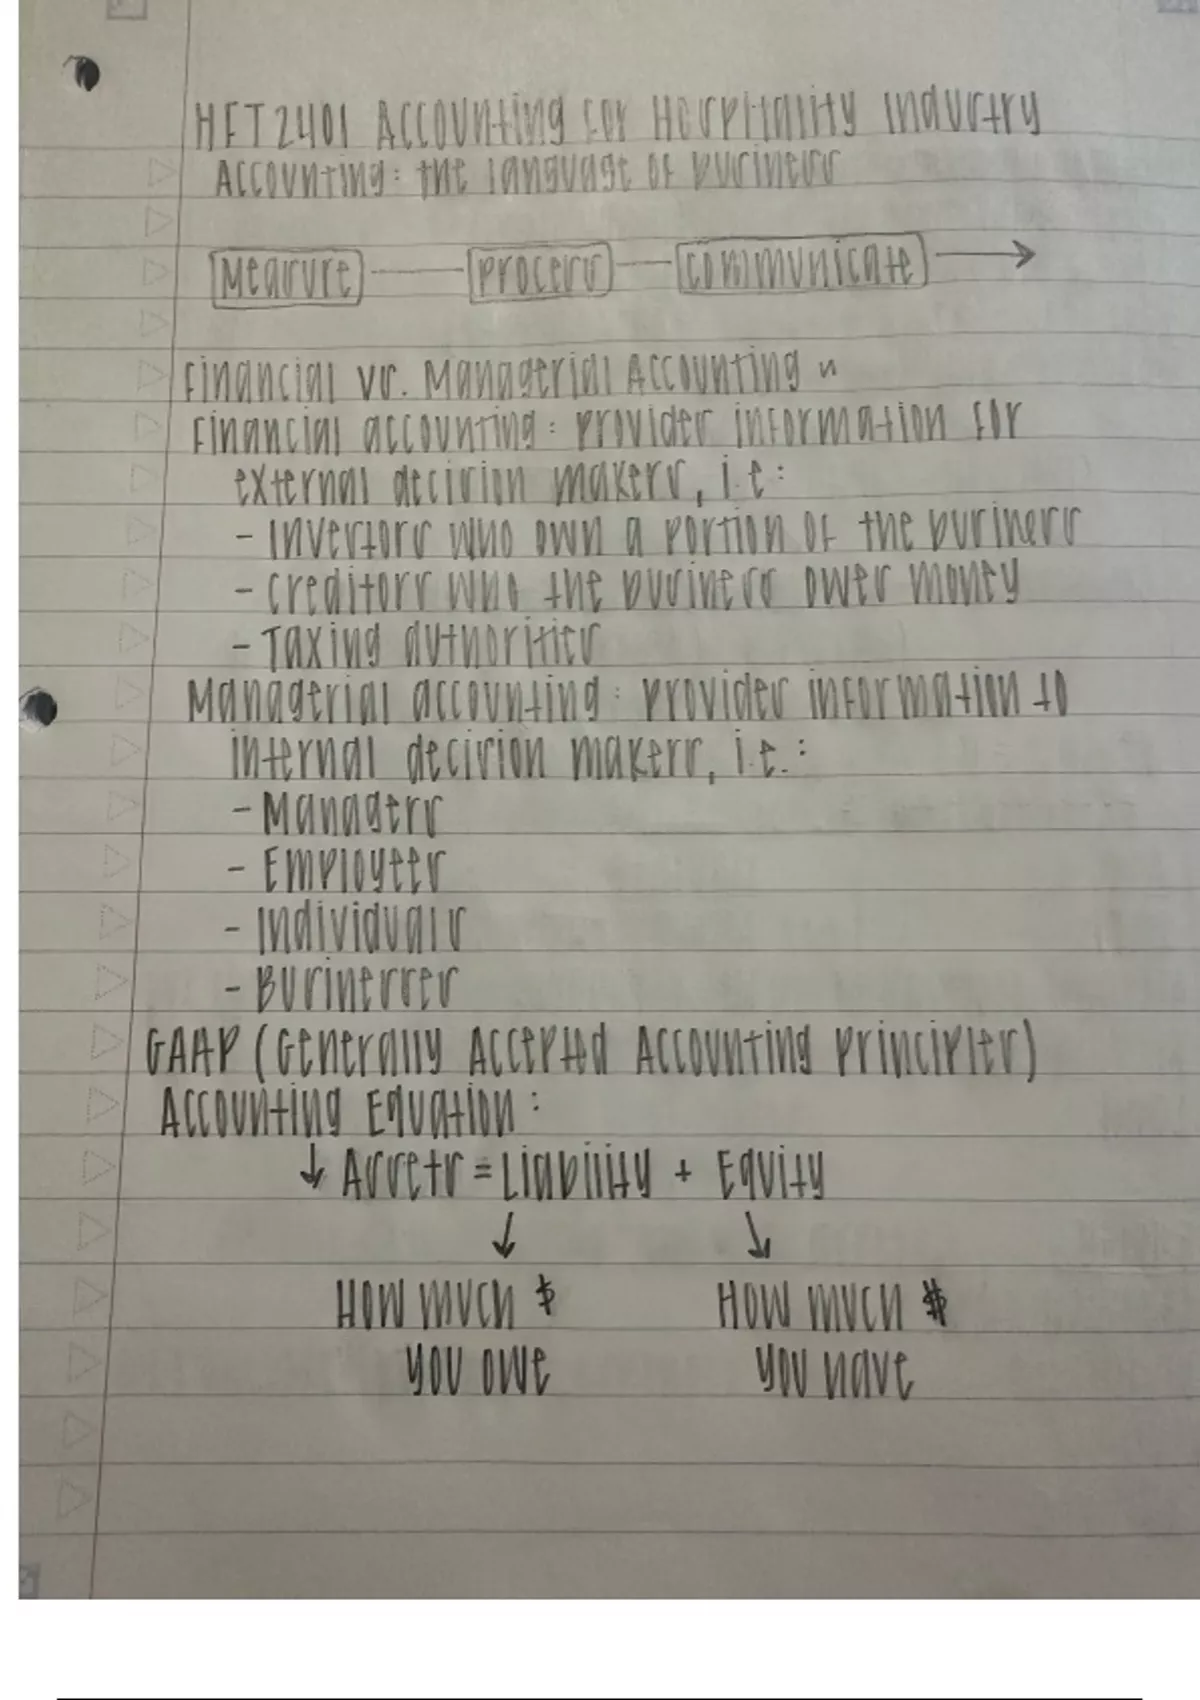 HFT2401 Accounting for Hospitality Industry
Accounting: the language of business
Measure — process — communicate →
Financial vs. Managerial Accounting
Financial accounting: provides information for
external decision makers, i.e:
- Investors who own a portion of the business
- creditors who the business owes money
- Taxing authorities
Managerial accounting: provides information to
internal decision makers, i.e.:
- Managers
- Employees
- Individuals
- Businesses
GAAP (Generally Accepted Accounting Principles)
Accounting Equation:
↓ Assets = Liability + Equity
↓ ↓
How much $ How much $
you owe you have